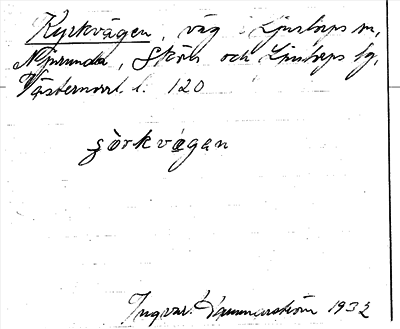 Kyrkvägen, väg i Ljustorps sn,
Njurunda, Sköns och Ljustorps tg,
Västernorrl. l. 120
şörkvägan
Ingvar Hammarström 1932